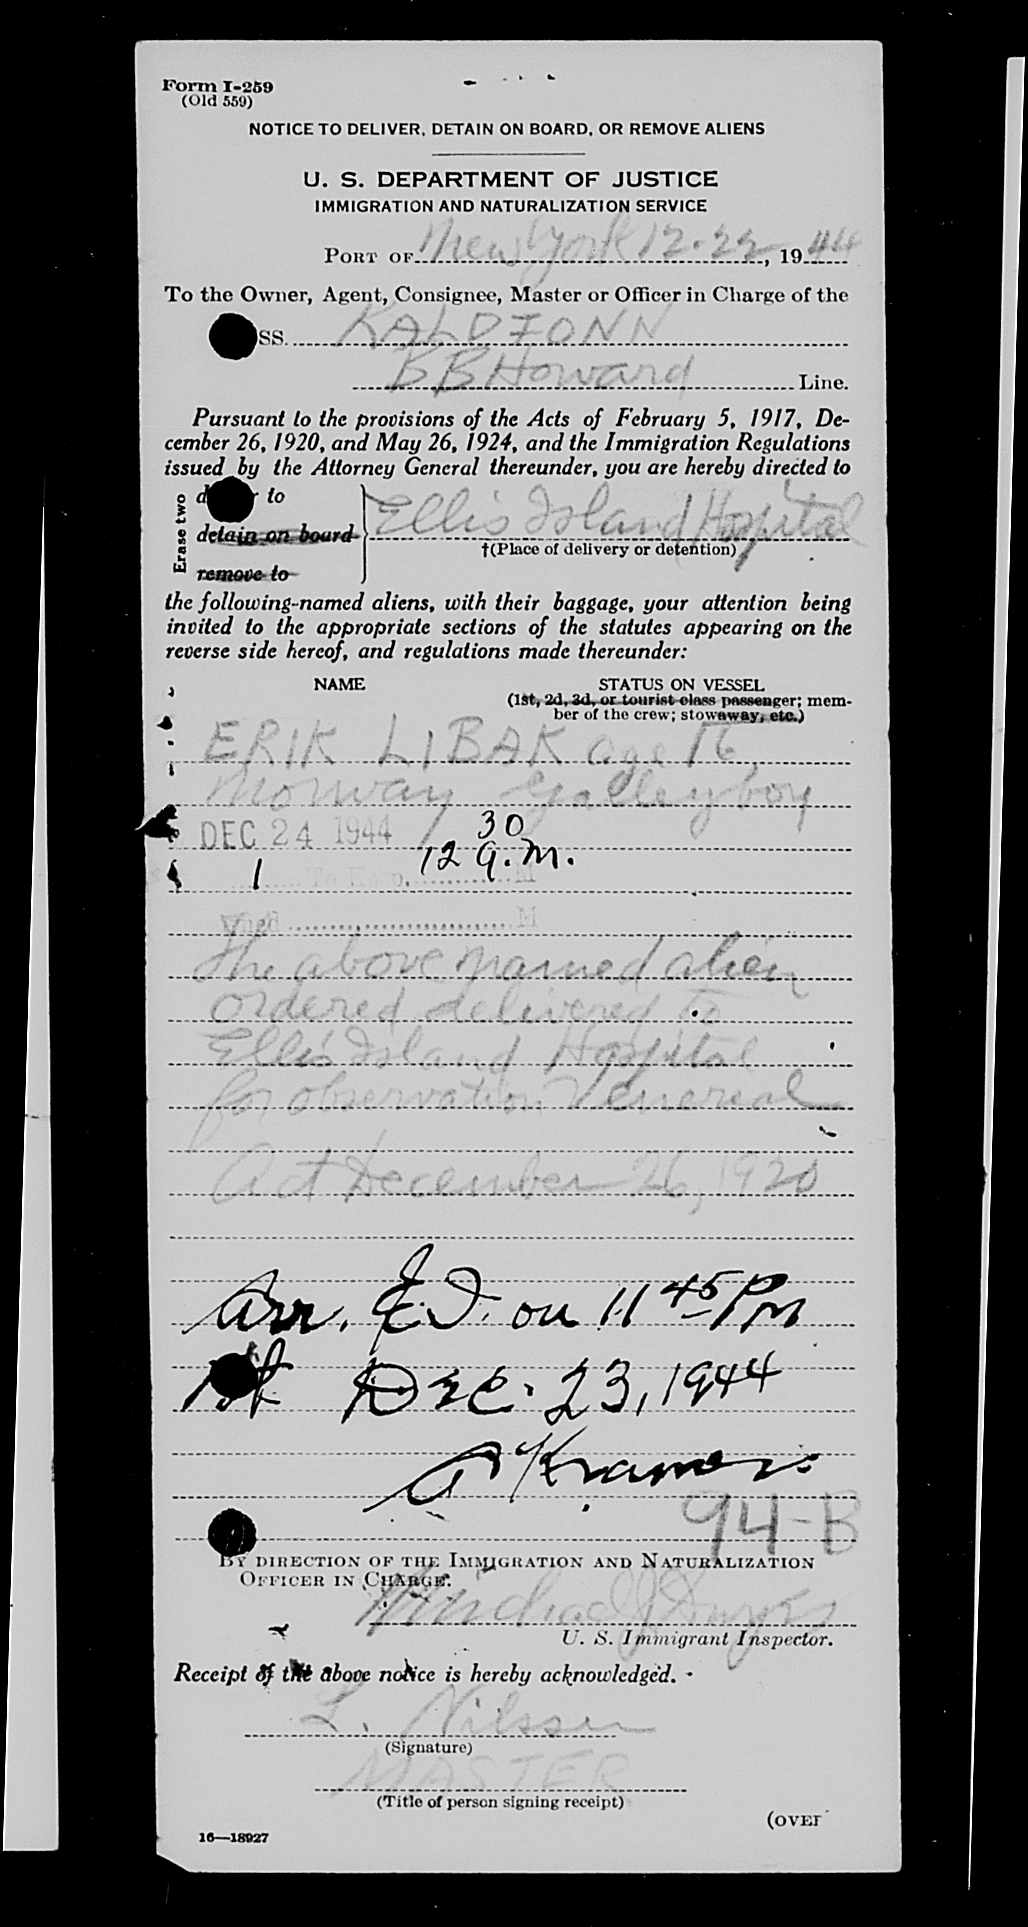 Form I-259
(Old 559)
NOTICE TO DELIVER, DETAIN ON BOARD, OR REMOVE ALIENS
U. S. DEPARTMENT OF JUSTICE
IMMIGRATION AND NATURALIZATION SERVICE
PORT OF New York 12-22, 1944
To the Owner, Agent, Consignee, Master or Officer in Charge of the
SS. KALDFONN
BB Howard Line.
Pursuant to the provisions of the Acts of February 5, 1917, De-
cember 26, 1920, and May 26, 1924, and the Immigration Regulations
issued by the Attorney General thereunder, you are hereby directed to
Erase two
to
detain on board
remove to
Ellis Island Hospital
†(Place of delivery or detention)
the following-named aliens, with their baggage, your attention being
invited to the appropriate sections of the statutes appearing on the
reverse side hereof, and regulations made thereunder:
NAME STATUS ON VESSEL
(1st, 2d, 3d, or tourist class passenger; mem-
ber of the crew; stowaway, etc.)
ERIK LIBAK age 16
Norway Galleyboy
DEC 24 1944
12 30 a.m.
1
M
M
The above named alien
ordered delivered to
Ellis Island Hospital
for observation Venereal
Act December 26, 1920
Arr. E.I. on 11 45 Pm
Dec. 23, 1944
Kramer
94-B
BY DIRECTION OF THE IMMIGRATION AND NATURALIZATION
OFFICER IN CHARGE.
Michael J
U. S. Immigrant Inspector.
Receipt of the above notice is hereby acknowledged.
L. Nilssen
(Signature)
MASTER
(Title of person signing receipt)
(OVER
16—18927